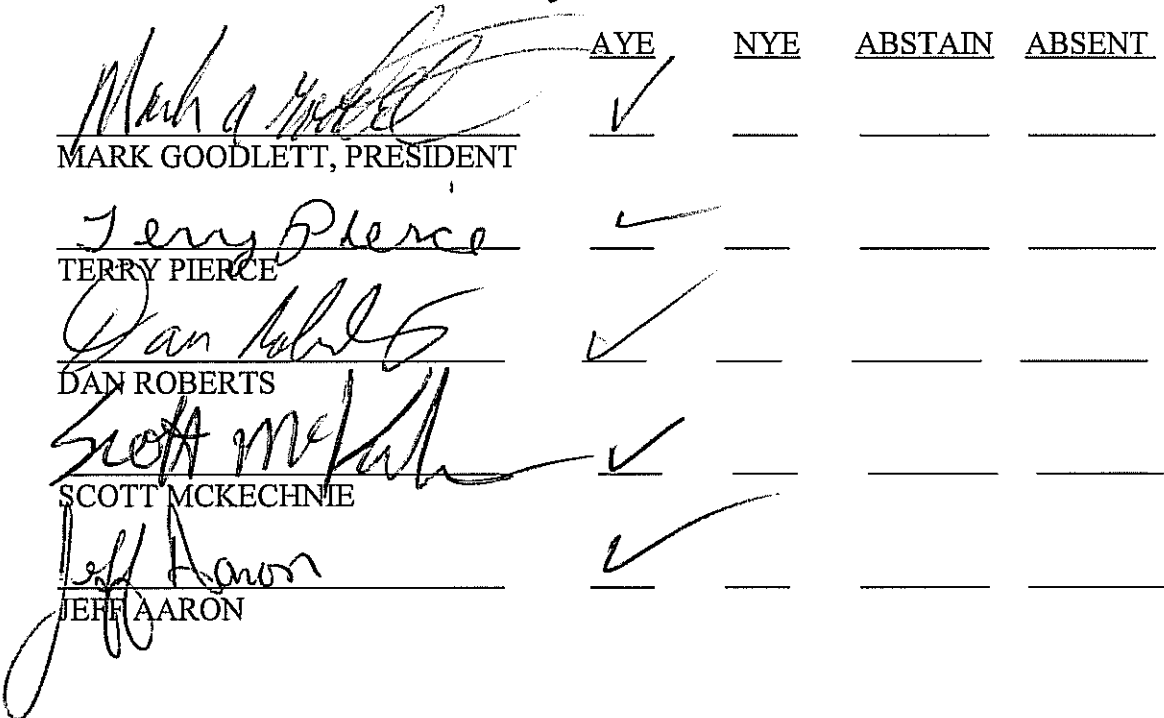 AYE NYE ABSTAIN ABSENT
Mark A Goodlett ✓
MARK GOODLETT, PRESIDENT
Terry Pierce ✓
TERRY PIERCE
Dan Roberts ✓
DAN ROBERTS
Scott McKechnie ✓
SCOTT MCKECHNIE
Jeff Aaron ✓
JEFF AARON